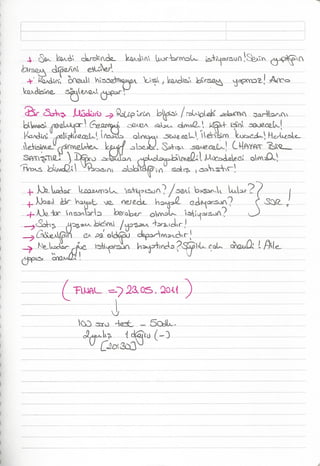 + Sen kendi derdinde kendini kurtarmak istiyorsun! Senin yaptığın
birşey diğerini etkiler!
+ Kendini önemli hissetmeyen kişi, kendisi birşey yapmaz! Ama
kendisine söyleneni yapar!
Bir Satış Müdürü → Rakip ürün bilgisi / rakipteki adamın şartlarını
bilmesi gerekiyor! Gezmeyi seven adam olmalı! işini sevecek!
Kendini geliştirecek! İnsan sevecek! iletişim kuracak! Herkesle
iletişime girmekten keyif alacak! Satışı sevecek! (HAYAT BİR
SATIŞTIR!) Doğru bilmeli! Mücadeleci olmalı!
bilmeli! satış, satıştır!
+ Ne kadar kazanmak istiyorsun? / seni başarılı kılar?
+ Nasıl bir hayat ve nerede hayal ediyorsun? SOR!
+ Ne tür insanlarla beraber olmak istiyorsun?
→ Satış yaşam biçimi / yaşam tarzıdır!
→ en az olduğu departmandır!
→ Ne kadar, ne istiyorsun hayatında? Sağlık çok önemli! Aile
yapısı önemli!
( FINAL => 23.05.2011 )
100 soru test - 50dk.
2 yanlış 1 doğru (-)
[20:30]